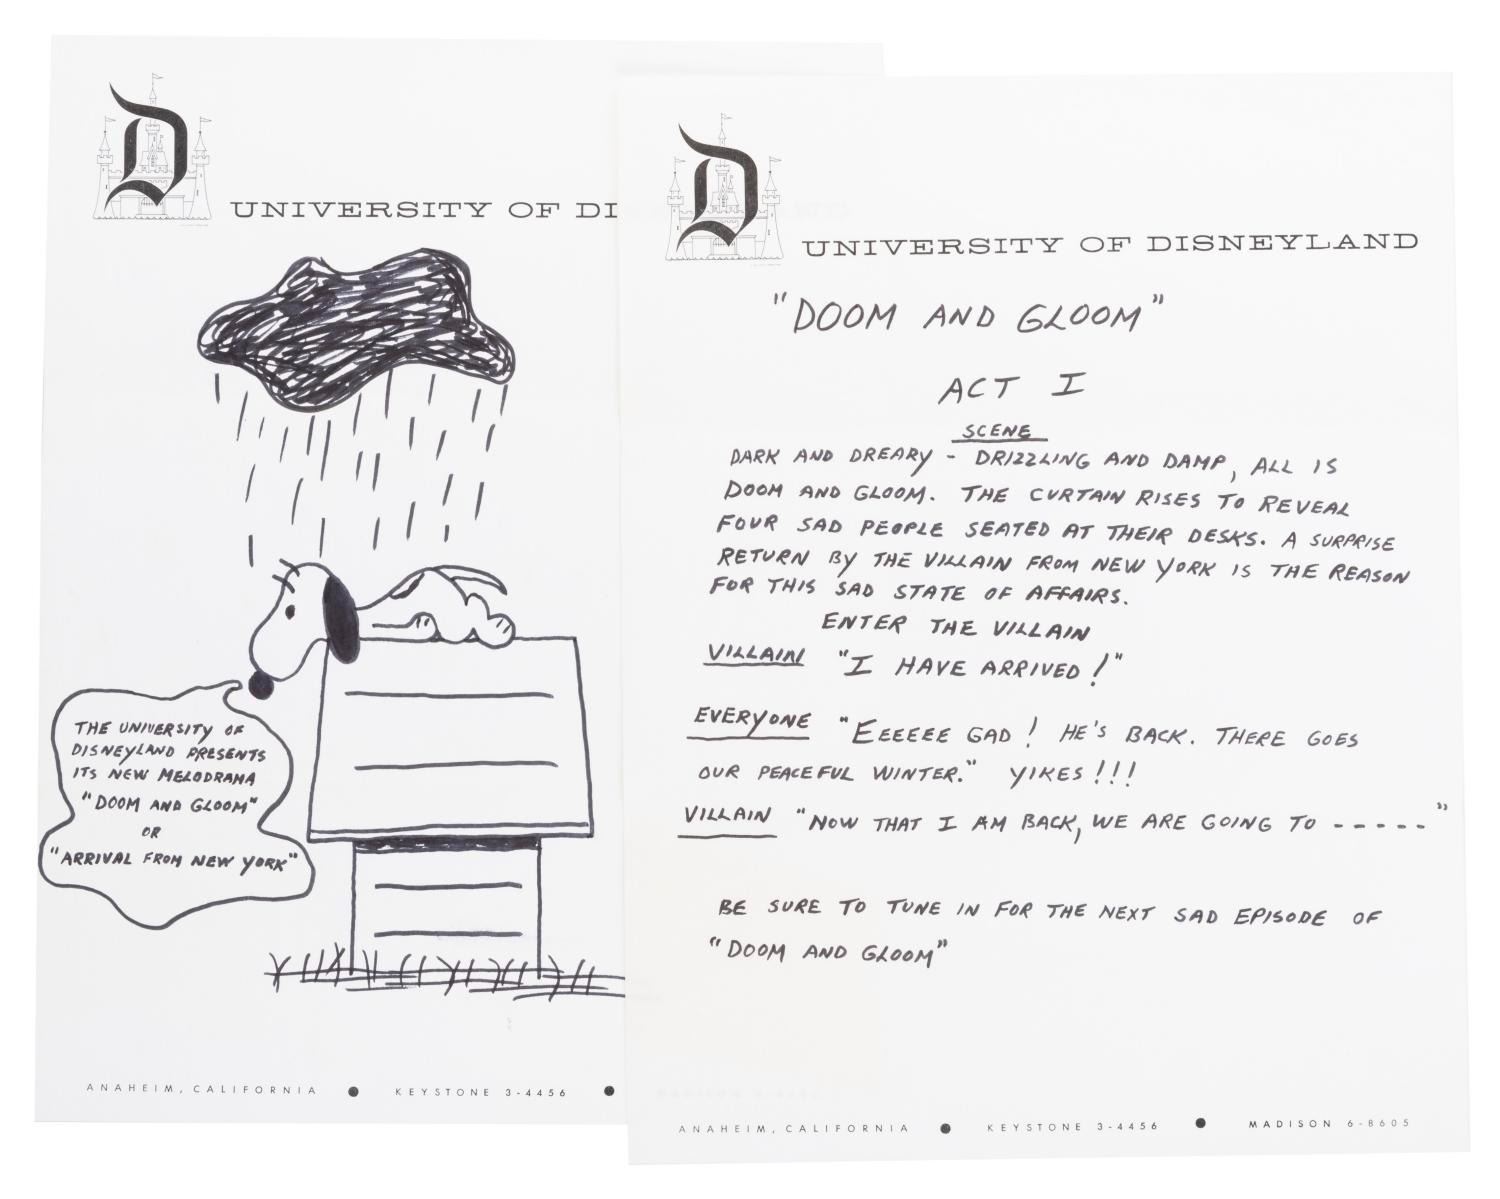 D
UNIVERSITY OF DI
THE UNIVERSITY OF
DISNEYLAND PRESENTS
ITS NEW MELODRAMA
"DOOM AND GLOOM"
OR
"ARRIVAL FROM NEW YORK"
ANAHEIM, CALIFORNIA ● KEYSTONE 3-4456 ●
D
UNIVERSITY OF DISNEYLAND
"DOOM AND GLOOM"
ACT I
SCENE
DARK AND DREARY - DRIZZLING AND DAMP, ALL IS
DOOM AND GLOOM. THE CURTAIN RISES TO REVEAL
FOUR SAD PEOPLE SEATED AT THEIR DESKS. A SURPRISE
RETURN BY THE VILLAIN FROM NEW YORK IS THE REASON
FOR THIS SAD STATE OF AFFAIRS.
ENTER THE VILLAIN
VILLAIN "I HAVE ARRIVED!"
EVERYONE "EEEEEE GAD! HE'S BACK. THERE GOES
OUR PEACEFUL WINTER." YIKES!!!
VILLAIN "NOW THAT I AM BACK, WE ARE GOING TO -----"
BE SURE TO TUNE IN FOR THE NEXT SAD EPISODE OF
"DOOM AND GLOOM"
ANAHEIM, CALIFORNIA ● KEYSTONE 3-4456 ● MADISON 6-8605